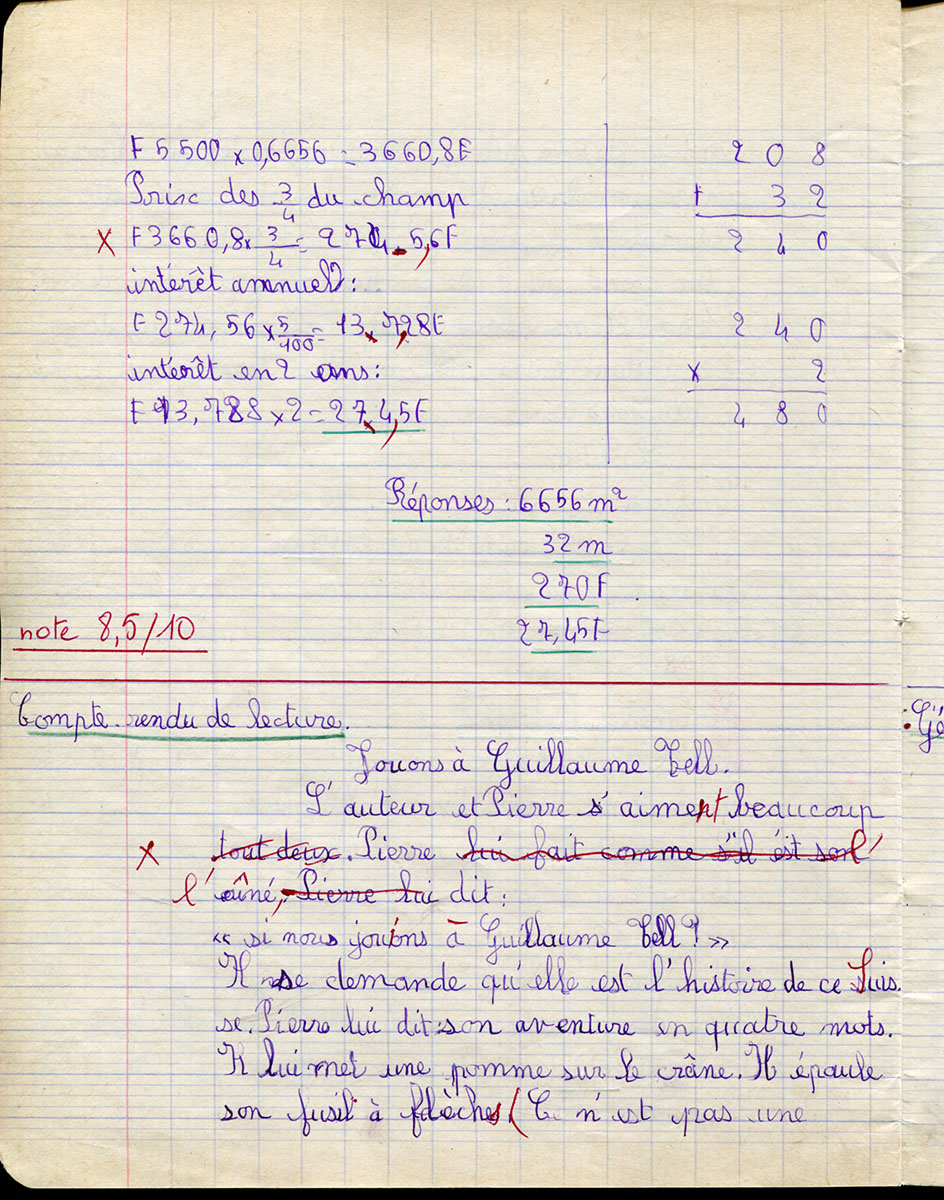 F 5 500 x 0,6656 = 3660,8F
Prix des 3/4 du champ
x F 3660,8 x 3/4 = 274 5,6F
intérêt annuel :
F 274,56 x 5/100 = 13 7,28F
intérêt en 2 ans :
F 13,788 x 2 = 27 4,5F
208
+ 32
240
240
x 2
480
Réponses : 6656 m²
32 m
270F
27,45F
note 8,5/10
Compte-rendu de lecture.
Jouons à Guillaume Tell.
L'auteur et Pierre s'aiment beaucoup
x tout deux. Pierre lui fait comme s'il ést son l'
l'aîné, Pierre lui dit :
« si nous jouions à Guillaume Tell ? »
Il se demande qu'elle est l'histoire de ce Suis.
se. Pierre lui dit son aventure en quatre mots.
Il lui met une pomme sur le crâne. Il épaule
son fusil à flèches ( C. n'est pas une
Gé